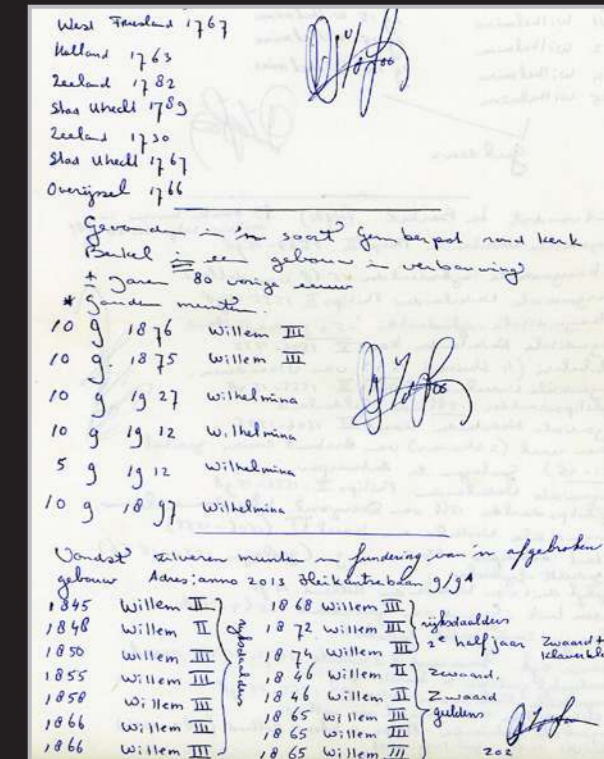 West Friesland 1767
Holland 1763
Zeeland 1782
Stad Utrecht 1789
Zeeland 1730
Stad Utrecht 1767
Overijssel 1766
Gevonden in 'n soort Gemberpot rond kerk
Berkel in een gebouw in verbouwing
± Jaren 80 vorige eeuw
* Gouden munten.
10 g 1876 Willem III
10 g. 1875 Willem III
10 g 1927 Wilhelmina
10 g 1912 Wilhelmina
5 g 1912 Wilhelmina
10 g 1897 Wilhelmina
Vondst zilveren munten in fundering van 'n afgebroken
gebouw Adres: anno 2013 Heikantsebaan 9/9A
1845 Willem II
1848 Willem II
1850 Willem III
1855 Willem III
1858 Willem III
1866 Willem III
1866 Willem III
rijksdaalders
1868 Willem III
1872 Willem III
1874 Willem III
rijksdaalders
2e half jaar Zwaard +
1846 Willem II Zwaard.
1846 Willem II Zwaard
1865 Willem III
1865 Willem III
1865 Willem III
guldens
202